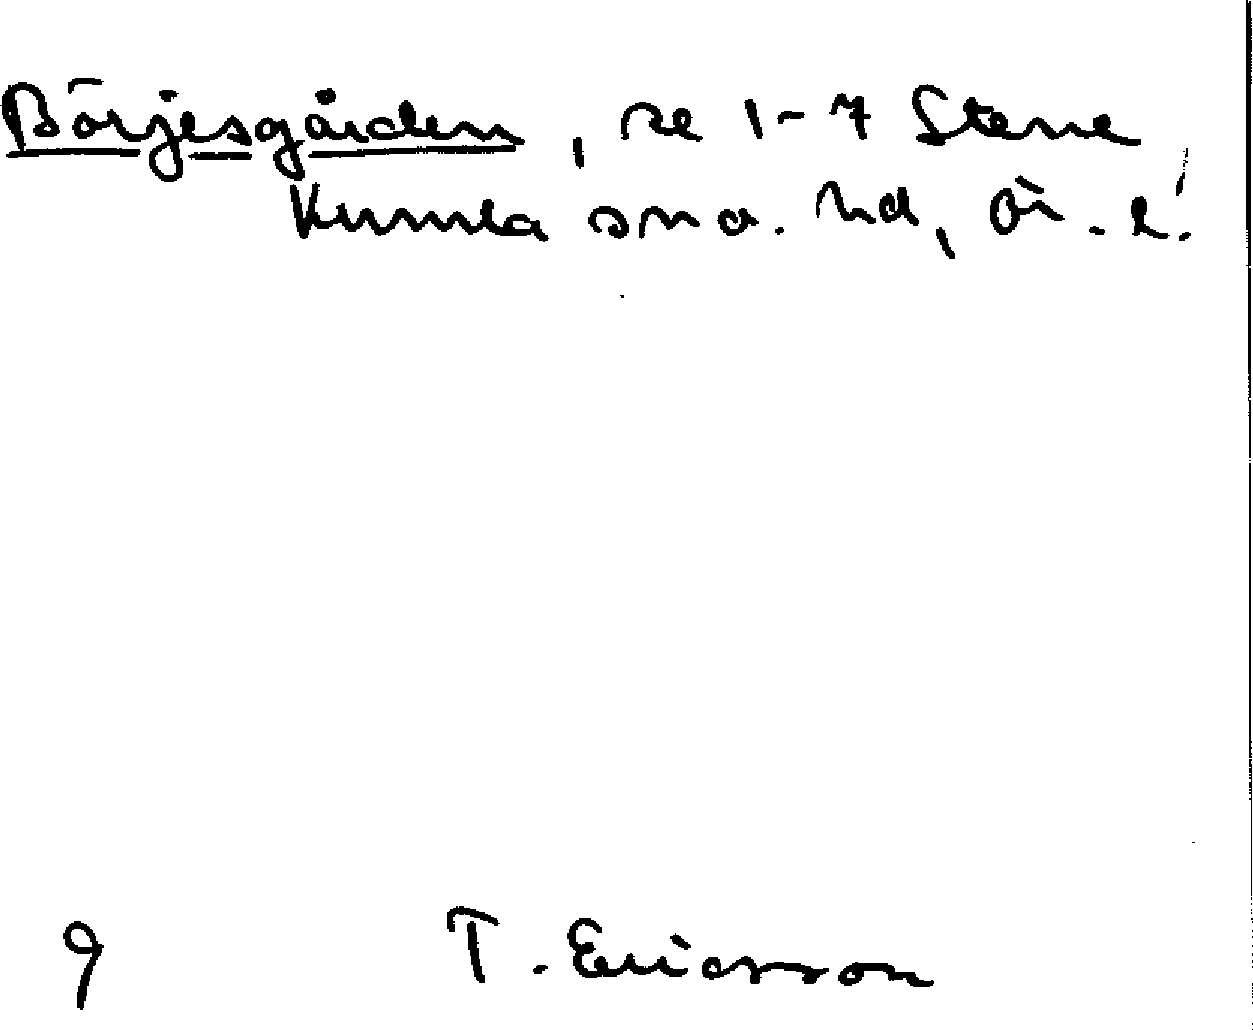 Börjesgården, se 1-7 Stene,
Kumla sn o. hd, Ör. l.
9 T. Ericsson